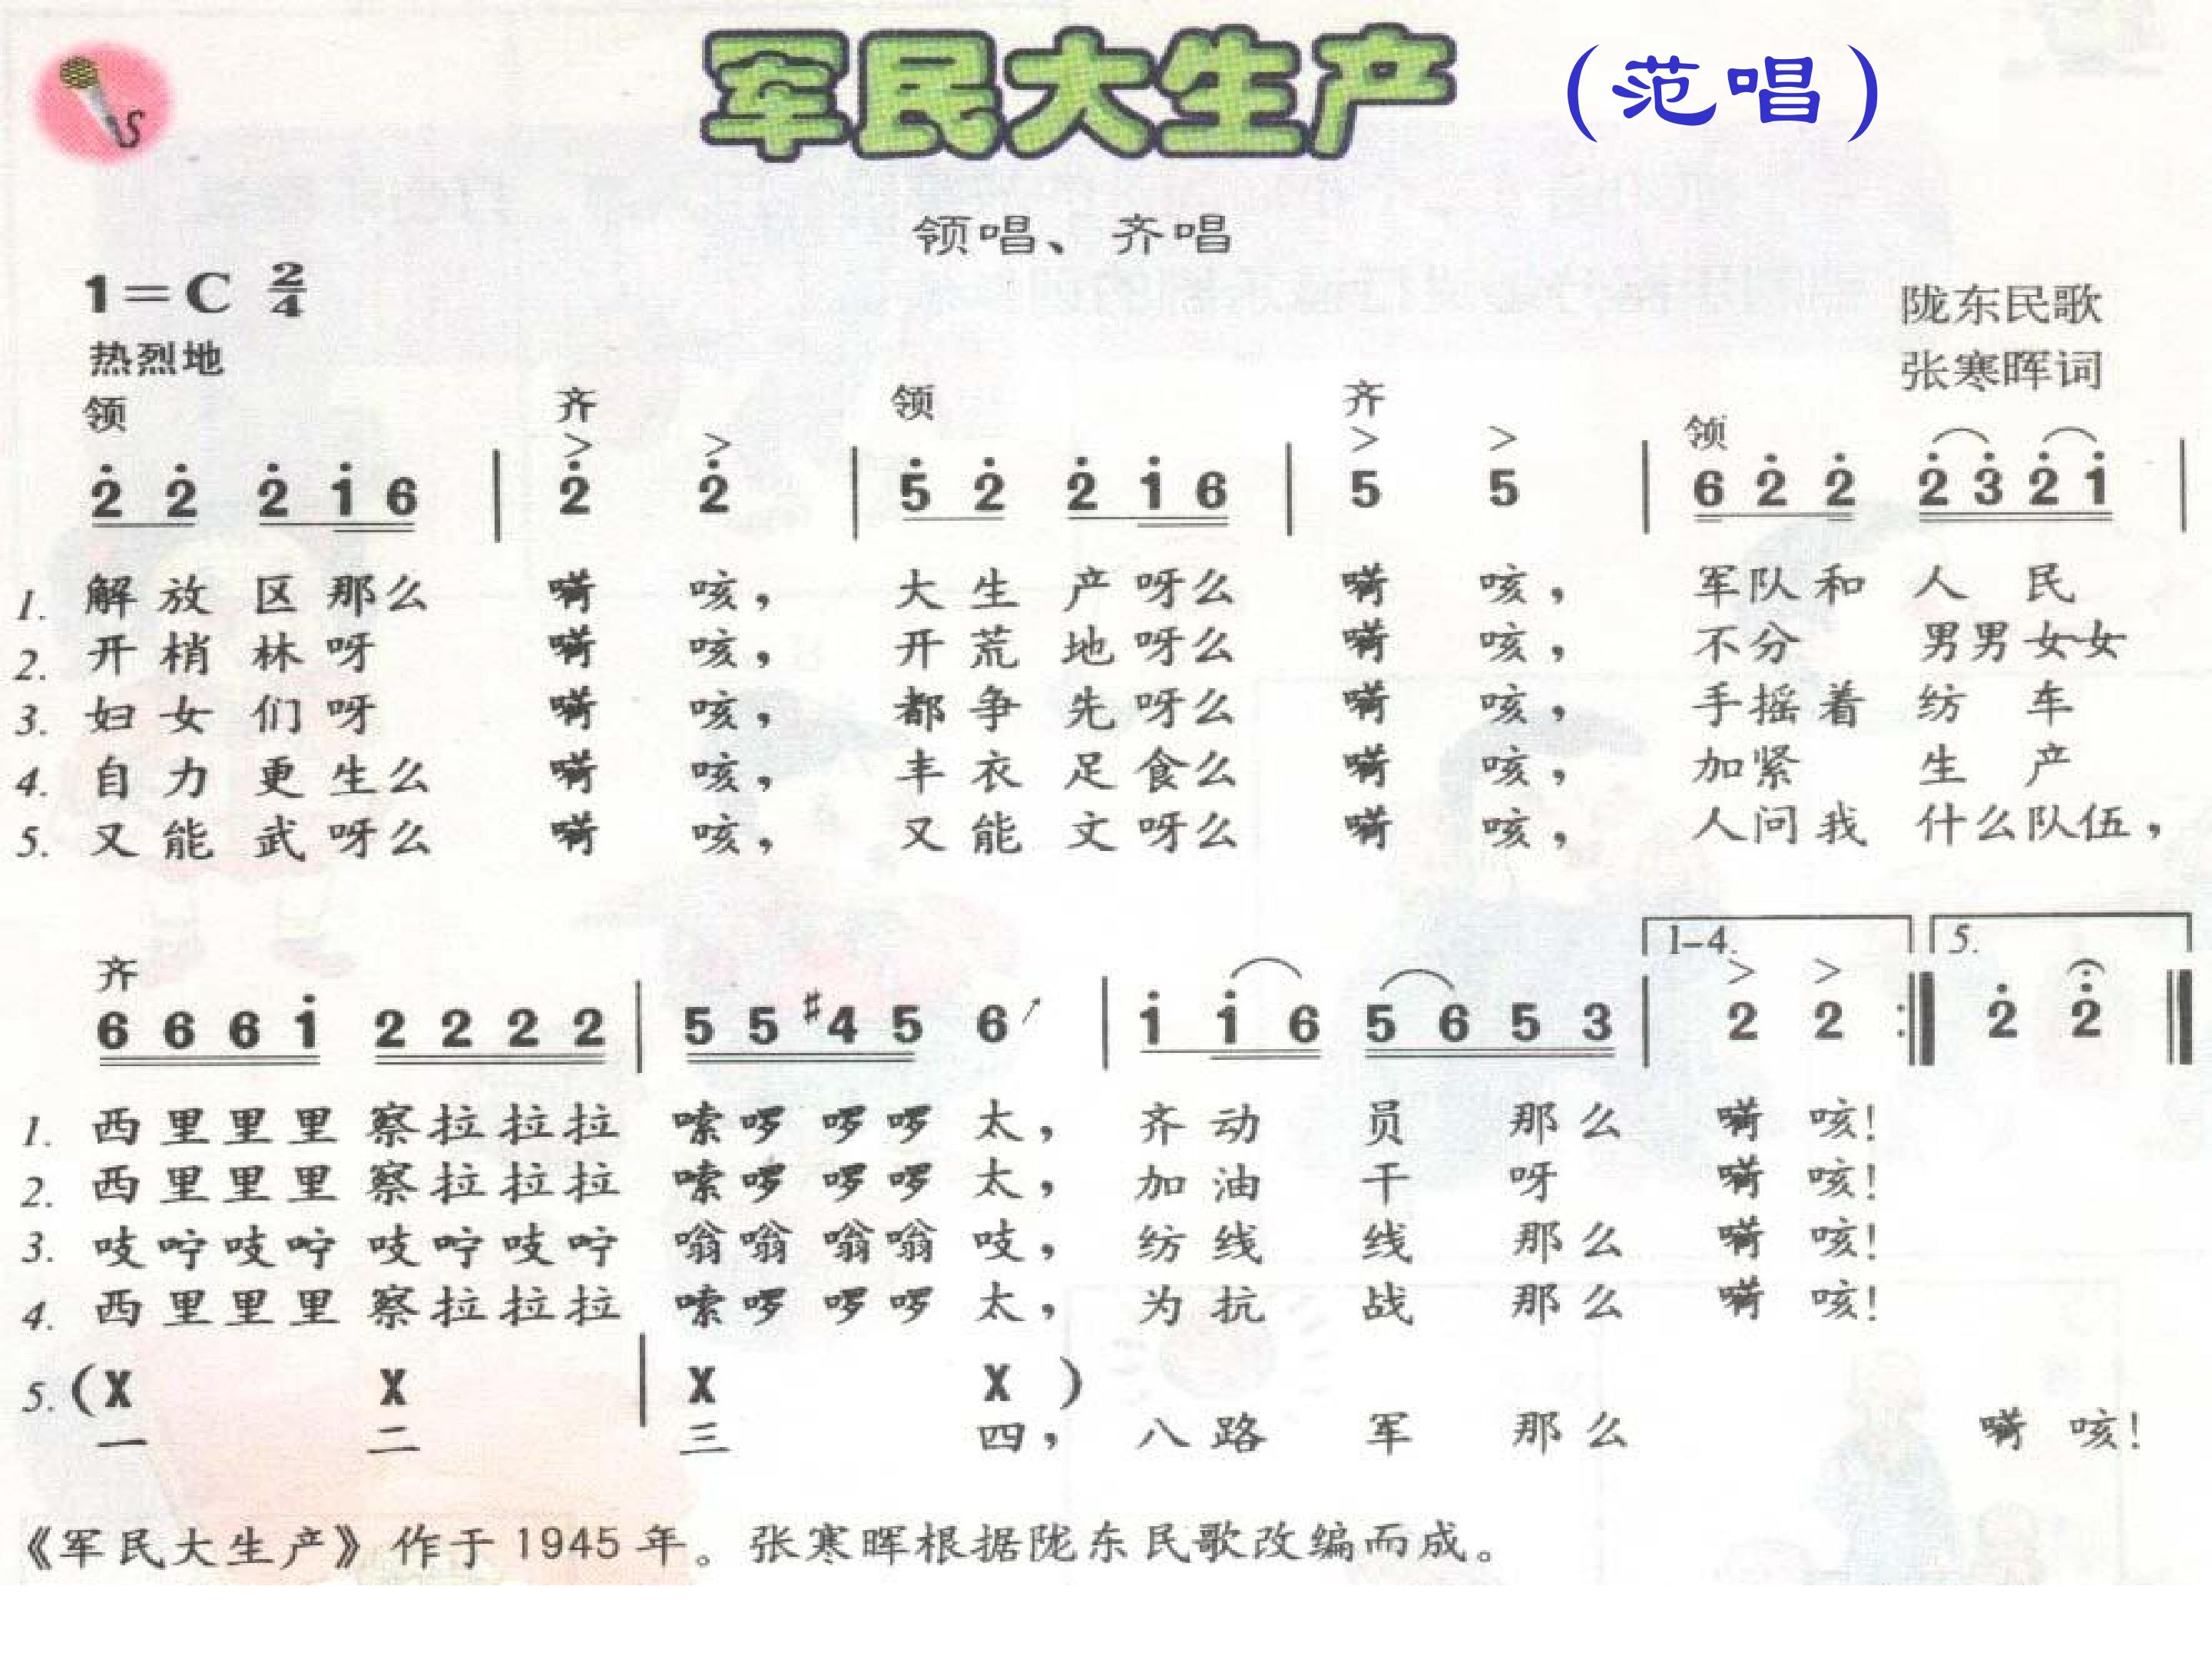 军民大生产 （范唱）
S
领唱、齐唱
1=C 2/4
陇东民歌
热烈地
张寒晖词
领 齐 领 齐 领
> > > >
2̇ 2̇ 2̇ 1̇ 6 | 2̇ 2̇ | 5̇ 2̇ 2̇ 1̇ 6 | 5 5 | 6̇ 2̇ 2̇ 2̇ 3̇ 2̇ 1̇ |
1. 解放区那么 嗬 咳， 大生产呀么 嗬 咳， 军队和 人 民
2. 开梢林呀 嗬 咳， 开荒地呀么 嗬 咳， 不分 男男女女
3. 妇女们呀 嗬 咳， 都争先呀么 嗬 咳， 手摇着 纺 车
4. 自力更生么 嗬 咳， 丰衣足食么 嗬 咳， 加紧 生 产
5. 又能武呀么 嗬 咳， 又能文呀么 嗬 咳， 人问我 什么队伍，
1-4. 5.
齐 > >
6 6 6 1̇ 2 2 2 2 | 5 5 #4 5 6↗ | 1̇ 1̇ 6 5 6 5 3 | 2 2 :‖ 2̇ 2̇ ‖
1. 西里里里 察拉拉拉 嗦啰啰啰 太， 齐动 员 那么 嗬 咳！
2. 西里里里 察拉拉拉 嗦啰啰啰 太， 加油 干 呀 嗬 咳！
3. 吱咛吱咛 吱咛吱咛 嗡嗡嗡嗡 吱， 纺线 线 那么 嗬 咳！
4. 西里里里 察拉拉拉 嗦啰啰啰 太， 为抗 战 那么 嗬 咳！
5. （X X | X X ）
一 二 三 四， 八路 军 那么 嗬 咳！
《军民大生产》作于1945年。张寒晖根据陇东民歌改编而成。